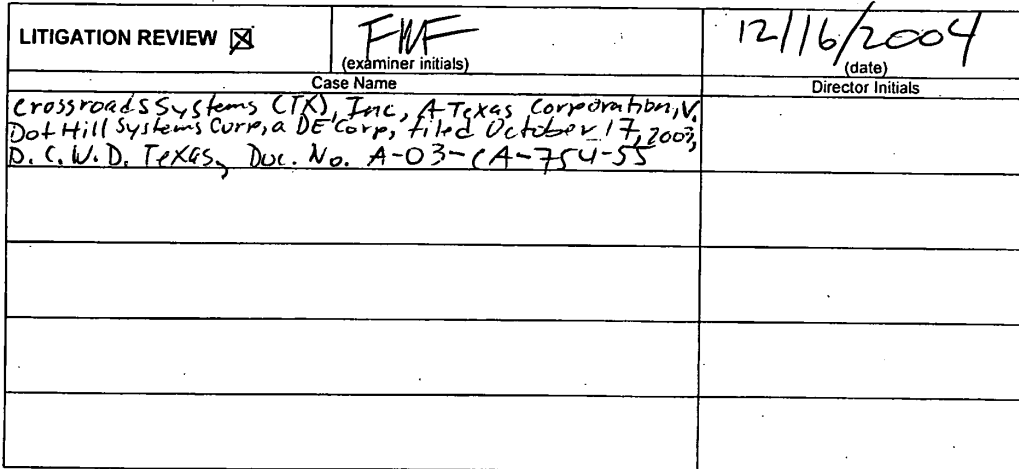 LITIGATION REVIEW ☒ FWF 12/16/2004
(examiner initials) (date)
Case Name Director Initials
Crossroads Systems (TX), Inc, A Texas Corporation, V.
Dot Hill Systems Corp, a DE Corp, filed October 17, 2003,
D.C.W.D. Texas, Doc. No. A-03-CA-754-SS